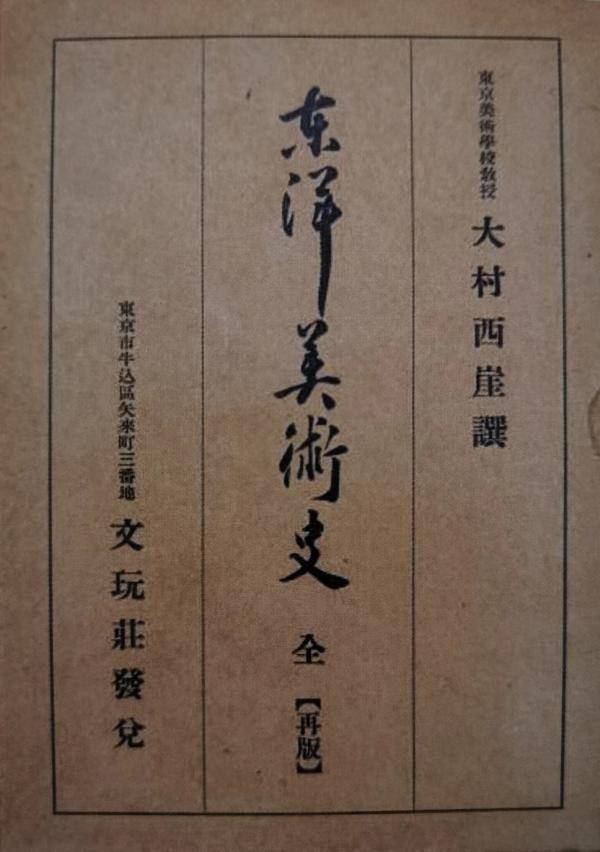 東京美術學校敎授 大村西崖譔
东洋美術史 全 【再版】
東京市牛込區矢來町三番地 文玩莊發兌